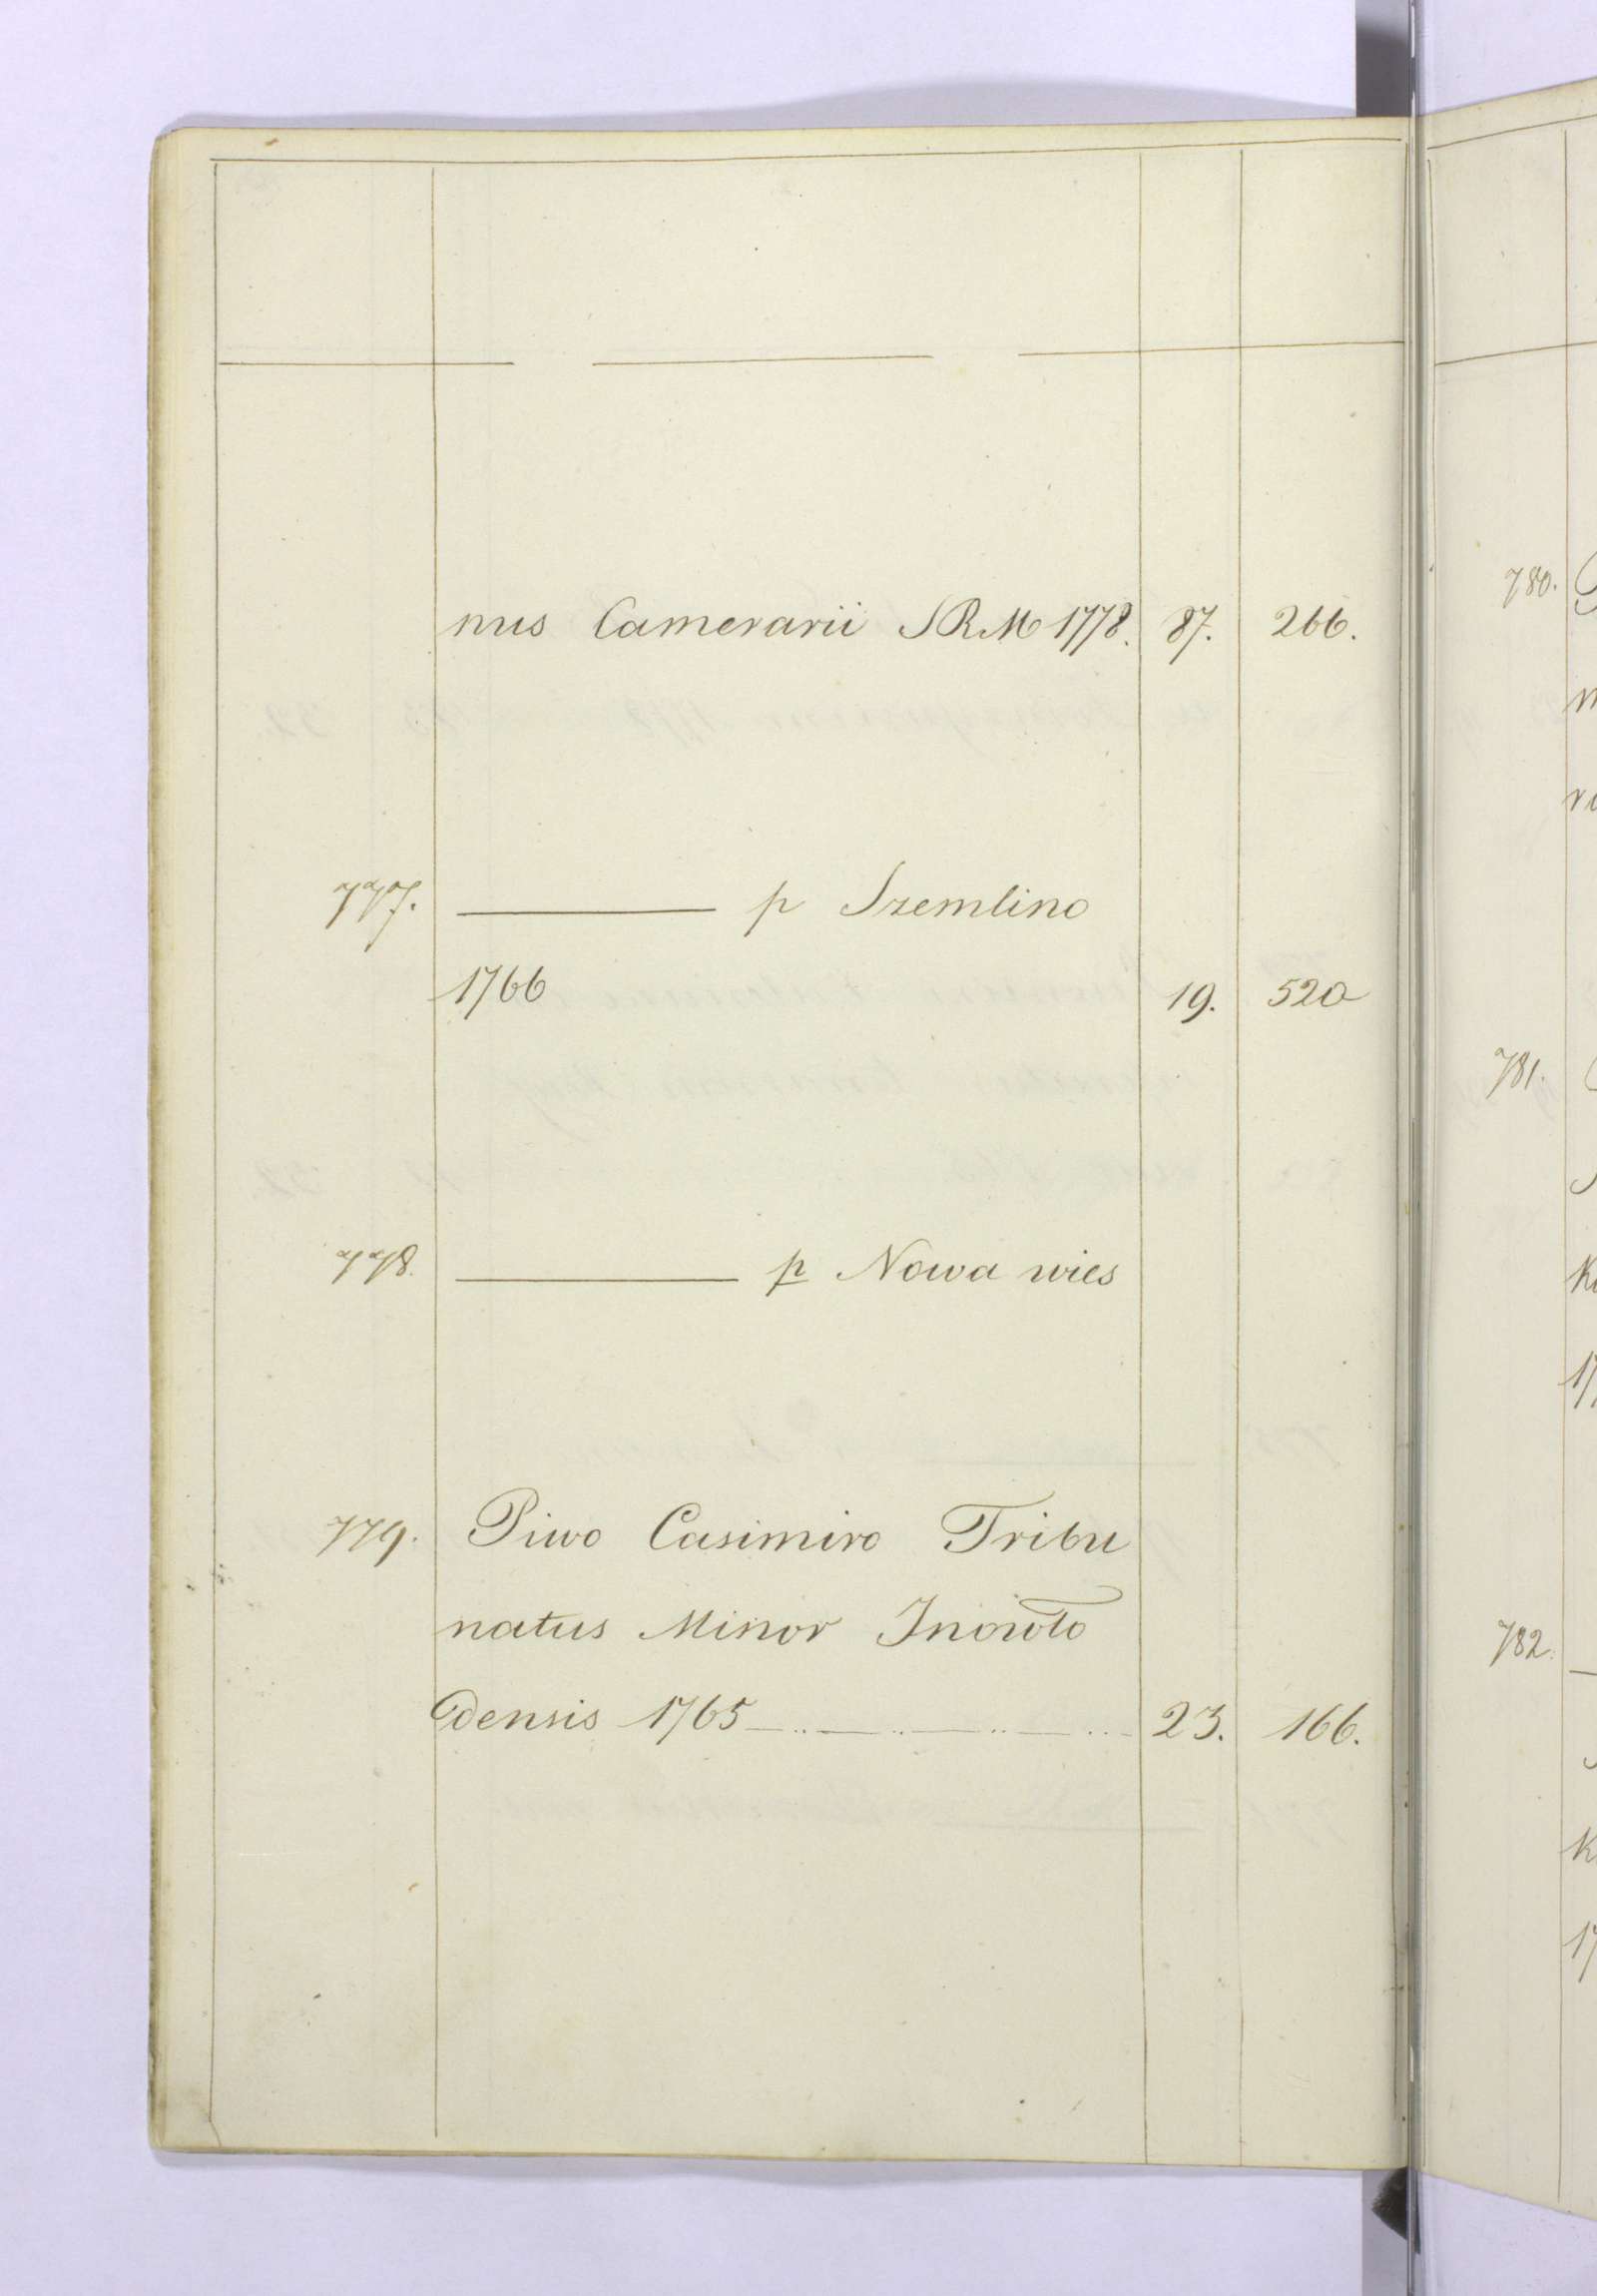 nus Camerarii SRM 1778. 87. 266.
777. ——— p Szemlino
1766 19. 520
778. ——— p Nowa wies
779. Piwo Casimiro Tribu
natus Minor Inowło
densis 1765 —..—..—..—.. 23. 166.
780.
781.
782.